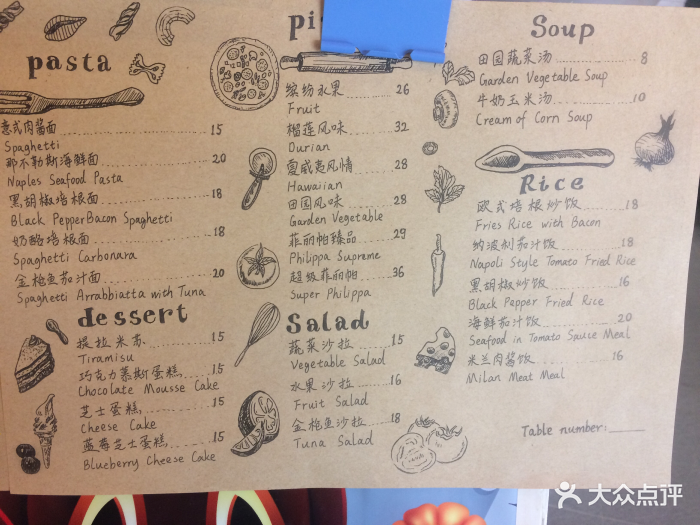 pasta
意式肉酱面 15
Spaghetti
那不勒斯海鲜面 20
Naples Seafood Pasta
黑胡椒培根面 18
Black Pepper Bacon Spaghetti
奶酪培根面 18
Spaghetti Carbonara
金枪鱼茄汁面 20
Spaghetti Arrabbiatta with Tuna
dessert
提拉米苏 15
Tiramisu
巧克力慕斯蛋糕 15
Chocolate Mousse Cake
芝士蛋糕 15
Cheese Cake
蓝莓芝士蛋糕 15
Blueberry Cheese Cake
缤纷水果 26
Fruit
榴莲风味 32
Durian
夏威夷风情 28
Hawaiian
田园风味 28
Garden Vegetable
菲丽帕臻品 29
Philippa Supreme
超级菲丽帕 36
Super Philippa
Salad
蔬菜沙拉 15
Vegetable Salad
水果沙拉 16
Fruit Salad
金枪鱼沙拉 18
Tuna Salad
Soup
田园蔬菜汤 8
Garden Vegetable Soup
牛奶玉米汤 10
Cream of Corn Soup
Rice
欧式培根炒饭 18
Fries Rice with Bacon
纳波利茄汁饭 18
Napoli Style Tomato Fried Rice
黑胡椒炒饭 16
Black Pepper Fried Rice
海鲜茄汁饭 20
Seafood in Tomato Sauce Meal
米兰肉酱饭 16
Milan Meat Meal
Table number:
大众点评